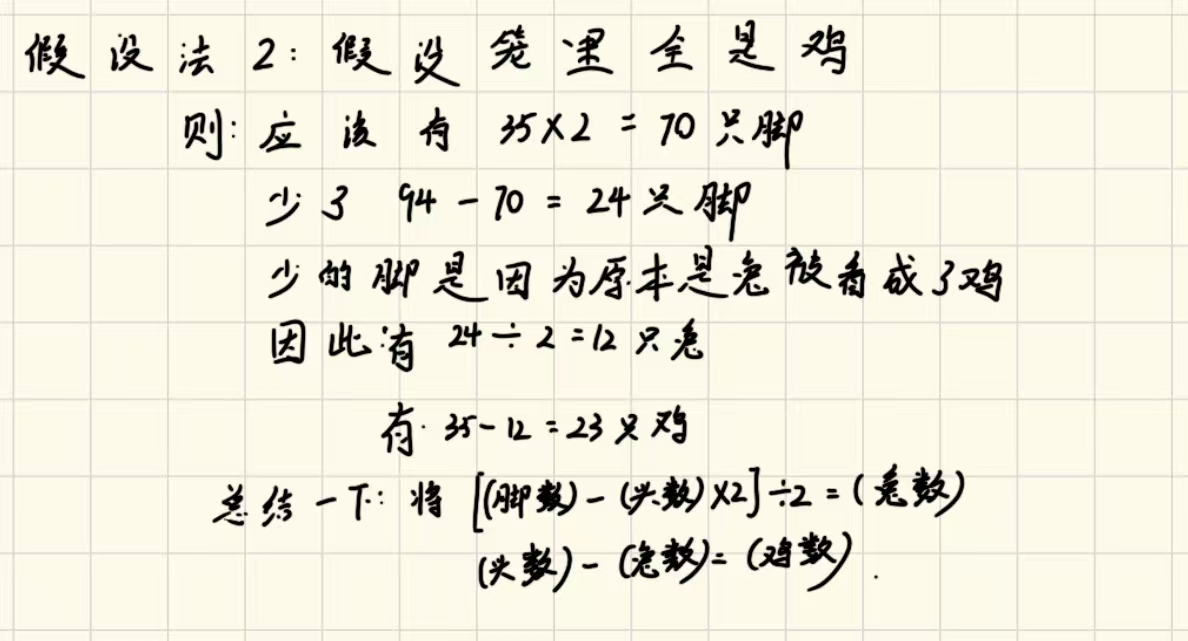 假设法2：假设笼里全是鸡
则：应该有 35×2=70只脚
少了 94-70=24只脚
少的脚是因为原本是兔被看成了鸡
因此有 24÷2=12只兔
有 35-12=23只鸡
总结一下：将 [(脚数)-(头数)×2]÷2=(兔数)
(头数)-(兔数)=(鸡数).